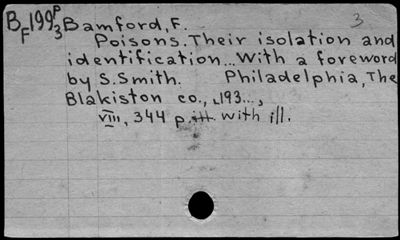 BF199P3 Bamford, F. 3
Poisons. Their isolation and
identification... With a foreword
by S. Smith. Philadelphia, The
Blakiston co., 193...,
VIII, 344 p. ill. with ill.